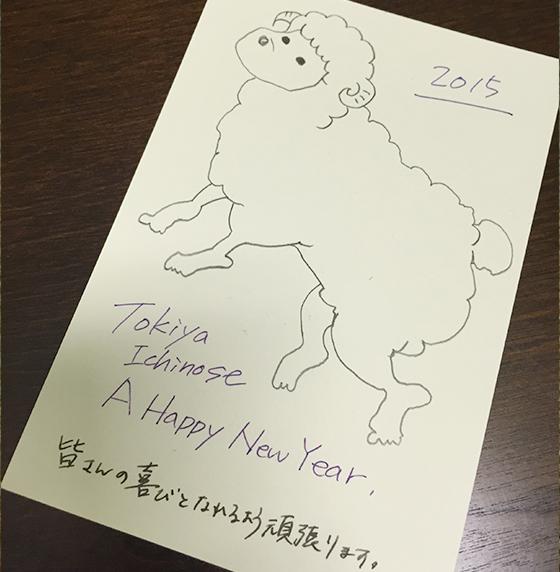 2015
Tokiya
Ichinose
A Happy New Year.
皆さんの喜びとなれるよう頑張ります。